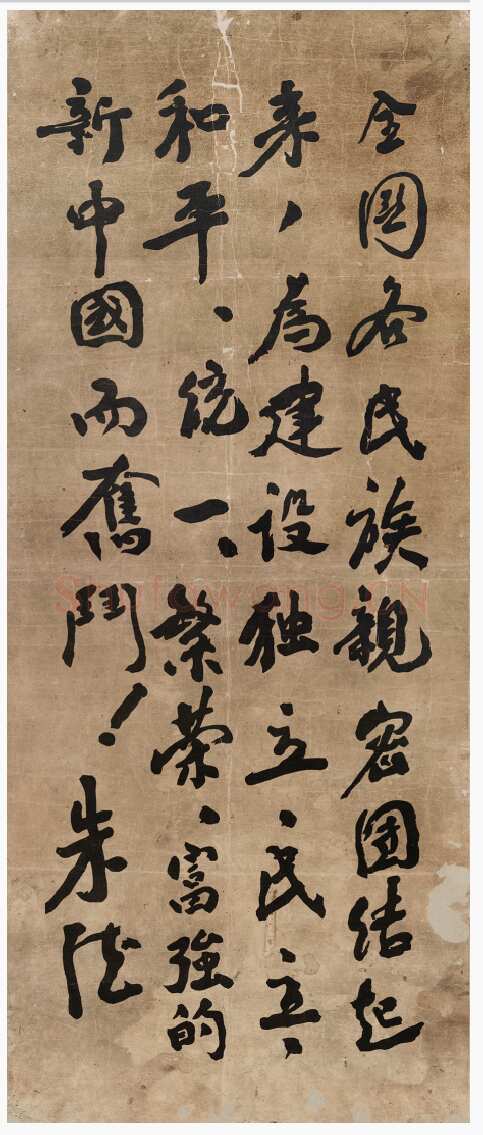 全國各民族親密團結起
来，為建设独立、民主、
和平、統一、繁荣、富強的
新中國而奮鬥！朱德
Shufawang.CN